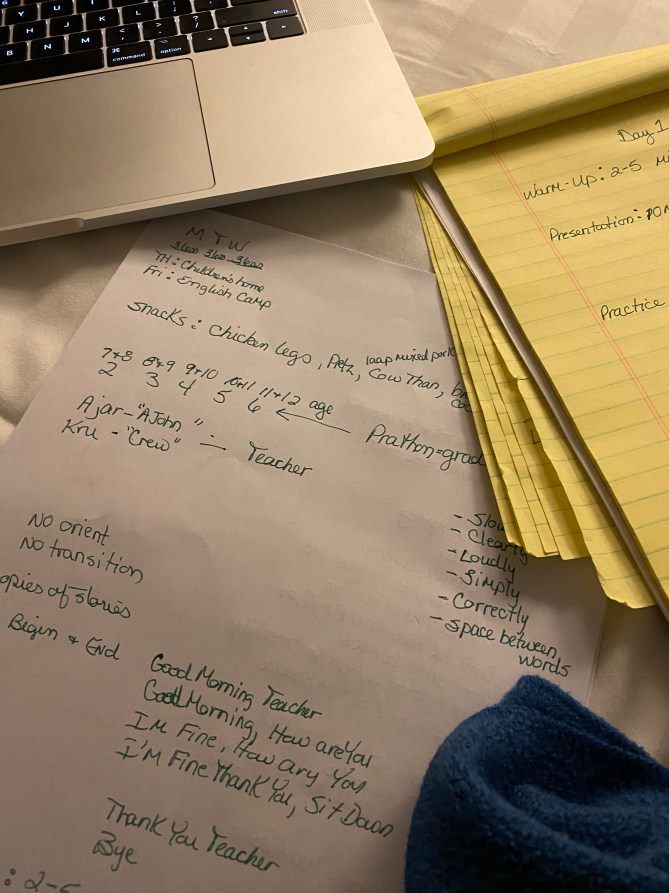 Y U I
G H J K L
B N M < , > . ? /
shift
⌘ command option
Day 1
Warm-Up: 2-5
Presentation:
Practice
M T W
TH: Children's home
Fri: English Camp
Snacks: Chicken legs, Petz, laap mixed pork
Cow Than,
7+8 8+9 9+10 10+11 11+12 age
2 3 4 5 6 ← Prathom=grad
Ajar-"AJohn"
Kru - "Crew" — Teacher
- Slow
- Clearly
- Loudly
- Simply
- Correctly
- Space between
words
No orient
No transition
opies of stories
Begin + End
Good Morning Teacher
Good Morning, How are You
I'm Fine, How ary You
I'm Fine Thank You, Sit Down
Thank You Teacher
Bye
: 2-5